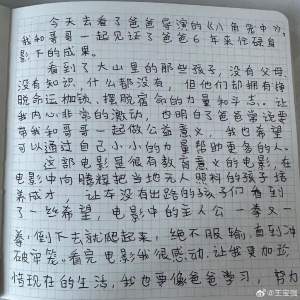 今天去看了爸爸导演的《八角笼中》，
我和哥哥一起见证了爸爸6年来在电
影下的成果。
看到了大山里的那些孩子，没有父母、
没有知识，什么都没有，但他们却拥有挣
脱命运枷锁、摆脱宿命的力量和斗志。让
我内心非常的激动，也明白了爸爸常说要
带我和哥哥一起做公益意义，我也希望
可以通过自己小小的力量帮助更多的人。
这部电影是很有教育意义的电影，在
电影中向腾辉把当地无人照料的孩子培
养成才，让在没有出路的孩子们看到
了一丝希望，电影中的主人公一拳又一
拳，倒下去就爬起来，绝不服输，直到冲
破牢笼。看完电影我很感动，让我更加珍
惜现在的生活，我也要像爸爸学习，努力
@王宝强